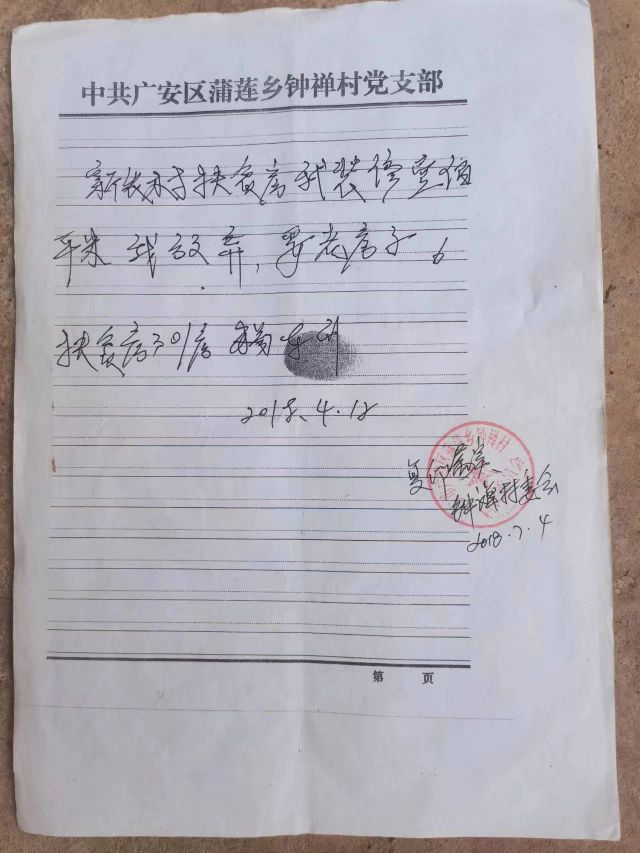 中共广安区蒲莲乡钟禅村党支部
新农村扶贫房我装修壹佰
平米 我放弃，要老房子
扶贫房301房
2018.4.12
复印属实
钟禅村委会
2018.7.4
第 页